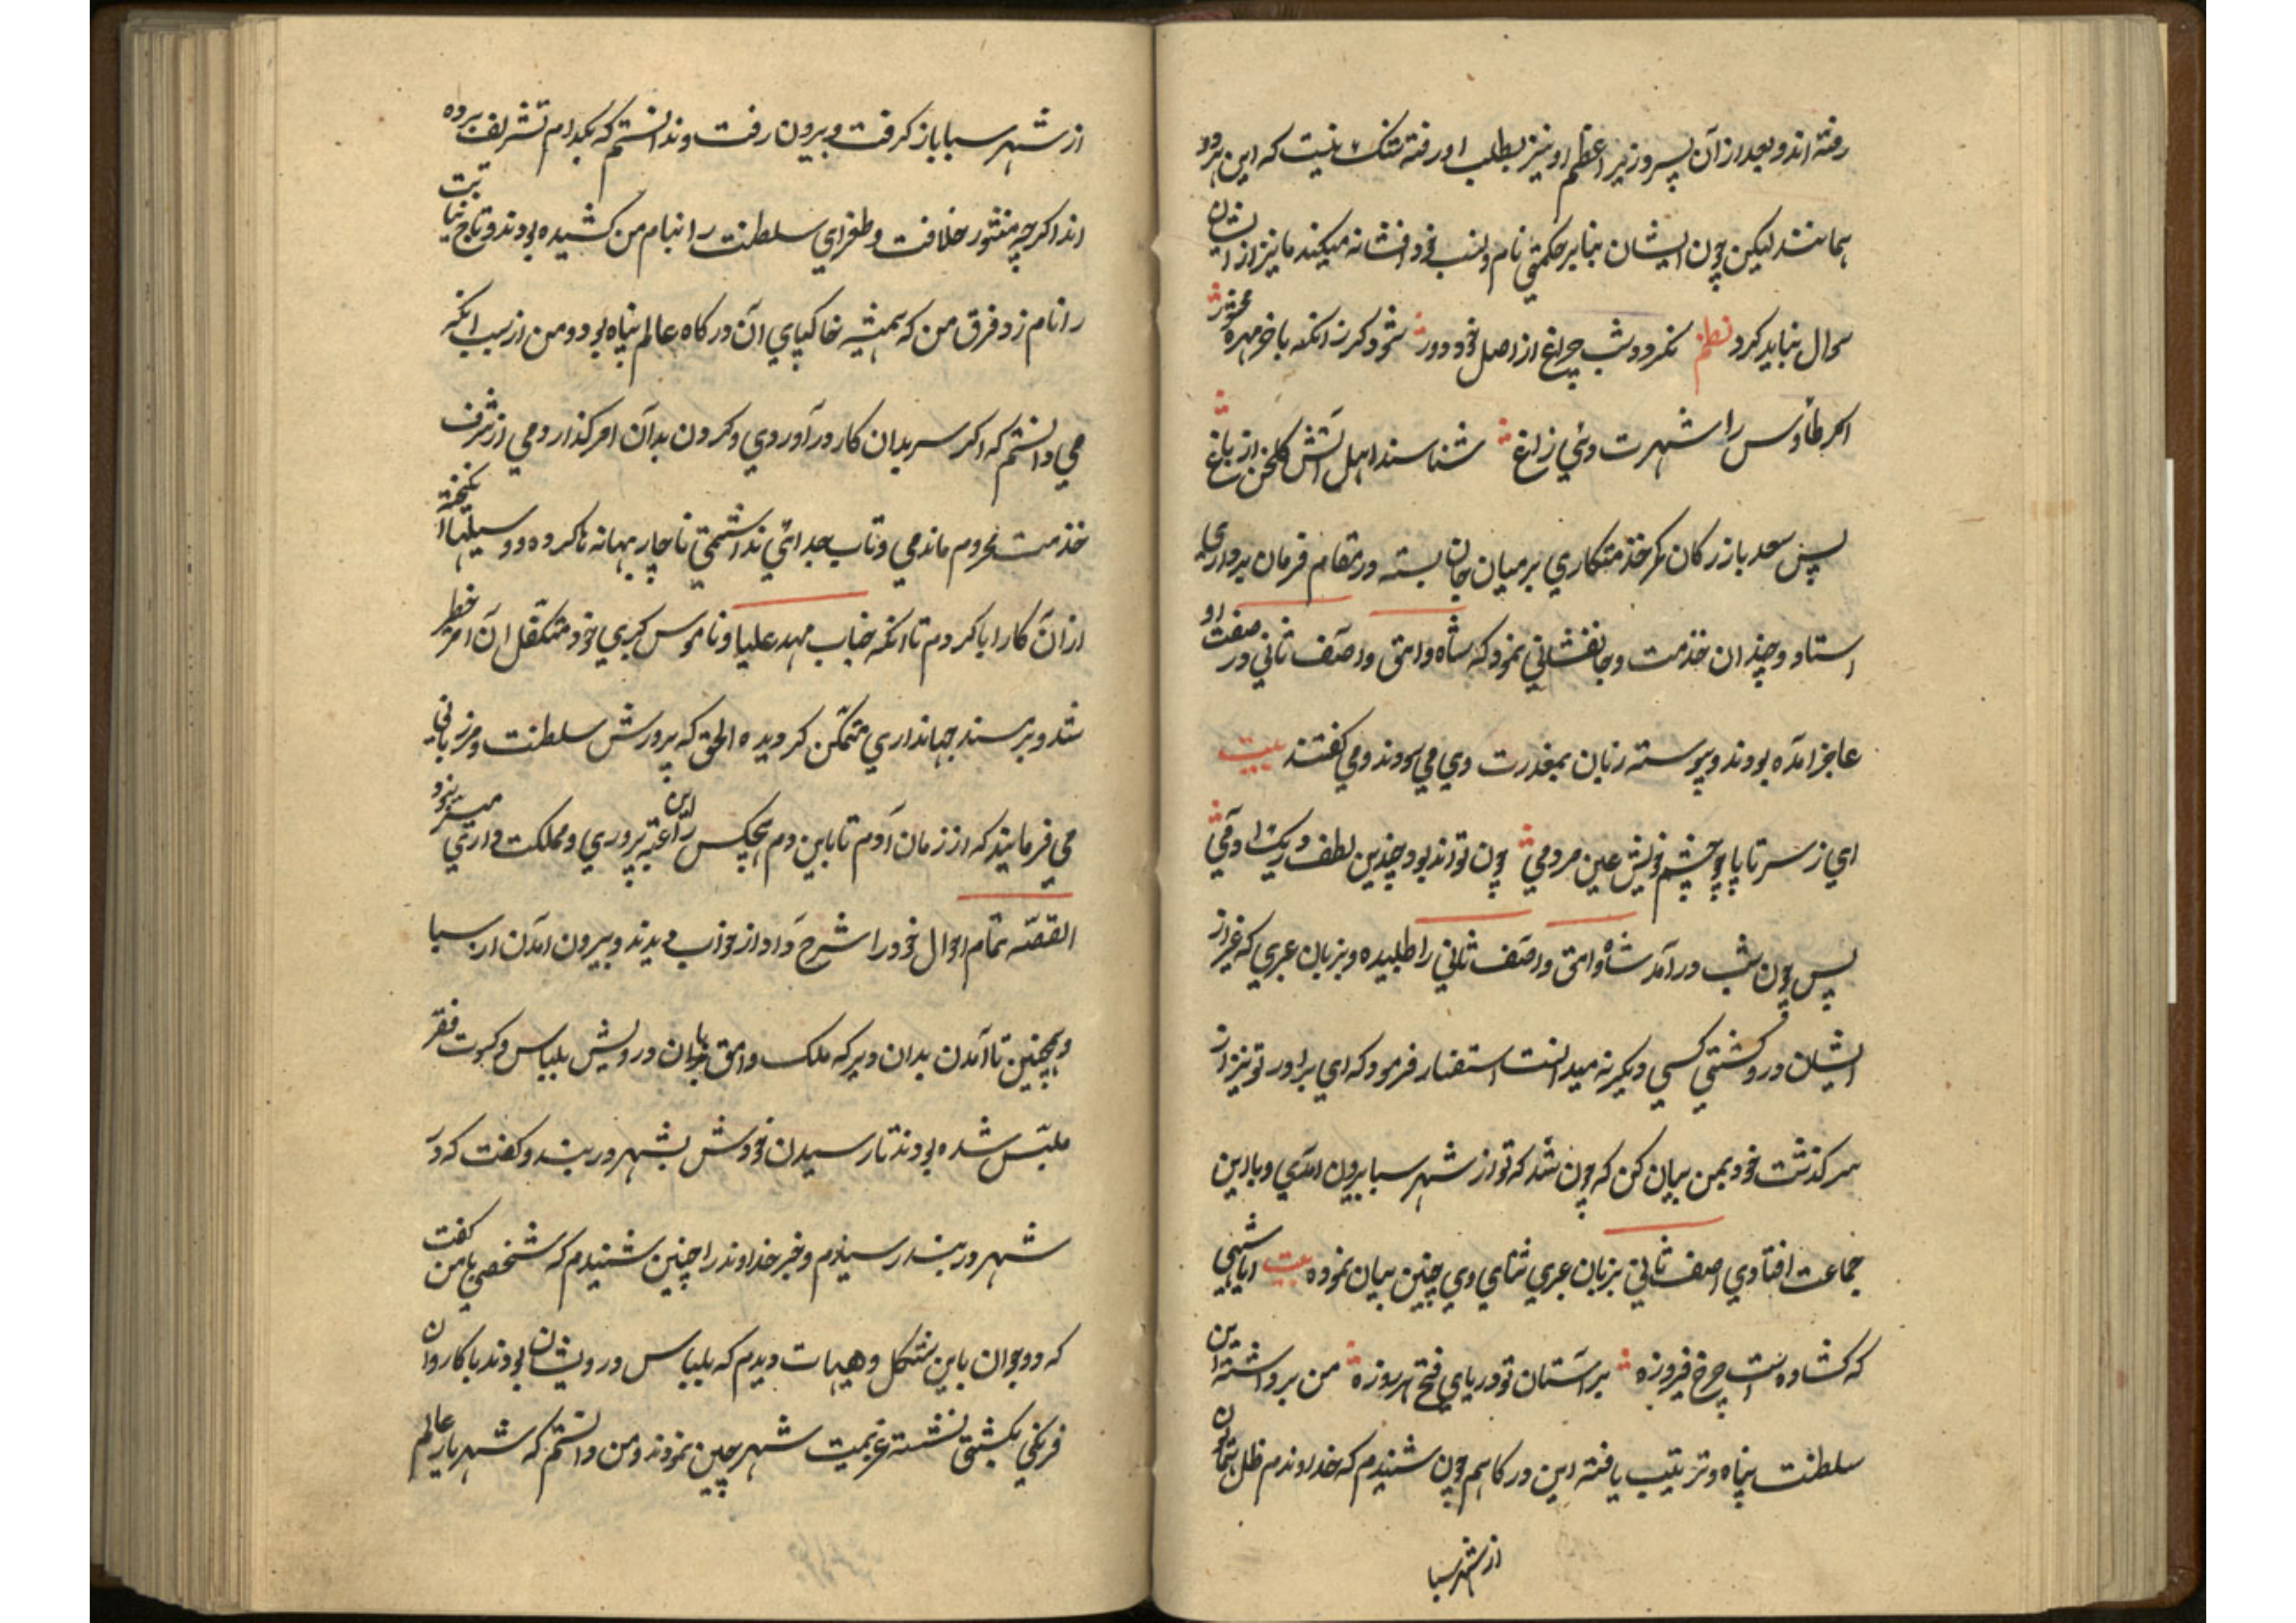 رفته اند و بعد از آن پسر وزیر اعظم او نیز بطلب او رفته شک نیست که این هردو
همانند لیکن چون ایشان بنابر حکمتی نام و نسب خود افشا نه میکنند ما نیز از ایشان
سوال نباید کرد نظم نگردد شب چراغ از اصل خود دور شود گر زانکه با خر مهره محشور
اگر طاوس را شهرت دهی زاغ شناسند اهل آتش گلخن از باغ
پس سعد بازرکان کمر خذمتکاری بر میان جان بسته در مقام فرمان برداری
استاد و چندان خذمت و جانفشانی نمود که شاه وامق و آصف ثانی در صفت او
عاجز آمده بودند و پیوسته زبان بمعذرت وی می سودند و می گفتند بیت
ای ز سر تا پا چو چشم خویش عین مردمی چون تواند بود چندین لطف در یک آدمی
پس چون شب در آمد شاه وامق و آصف ثانی را طلبیده و بزبان عبری که غیر از
ایشان در کشتی کسی دیگر نه میدانست استفسار فرمود که ای برادر تو نیز از
سرگذشت خود بمن بیان کن که چون شد که تو از شهر سبا بیرون آمدی و با این
جماعت افتادی آصف ثانی بزبان عبری ثنای وی چنین بیان نموده بیت ایا شهی
که کشاده است چرخ فیروزه بر آستان تو درهای فتح هر روزه من برداشته این
سلطنت پناه و تربیت یافته این درگاهم چون شنیدم که خداوندم ظل
از شهر سبا
از شهر سبا باز گرفت و بیرون رفت و ندانستم که بکدام تشریف برده
اند اگرچه منشور خلافت و طغرای سلطنت را بنام من کشیده بودند و تاج نیابت
را نام زد فرق من که همیشه خاکپای آن درگاه عالم پناه بود و من از سبب آنکه
می دانستم که اگر سر بدان کار در آوردی و گردن بدآن امر گذاردمی از شرف
خذمت محروم ماندمی و تاب جدائی نداشتمی ناچار بهانه ها کرده و وسیلتها انگیخته
از آن کار ابا کردم تا آنکه جناب مهد علیا و ناموس کبری خود متکفل آن امر خطر
شد و بر مسند جهانداری متمکن گردیده الحق که پرورش سلطنت و مرزبانی
می فرمایند که از زمان آدم تا باین دم هیچکس را این رعیت پروری و مملکت داری میسر نبود
القصّه تمام احوال خود را شرح داد از خواب دیدند و بیرون آمدن از سبا
و همچنین تا آمدن بدان دیر که ملک وامق با جوان درویش بلباس و کسوت فقر
ملبّس شده بودند تا رسیدن خودش بشهر دربند و گفت که در
شهر دربند رسیدم و خبر خداوند را چنین شنیدم که شخصی با من گفت
که دو جوان باین شکل و هیات دیدم که بلباس درویشان بودند با کاروان
فرنگی بکشتی نشسته عزیمت شهر چین نمودند و من دانستم که شهریار عالم